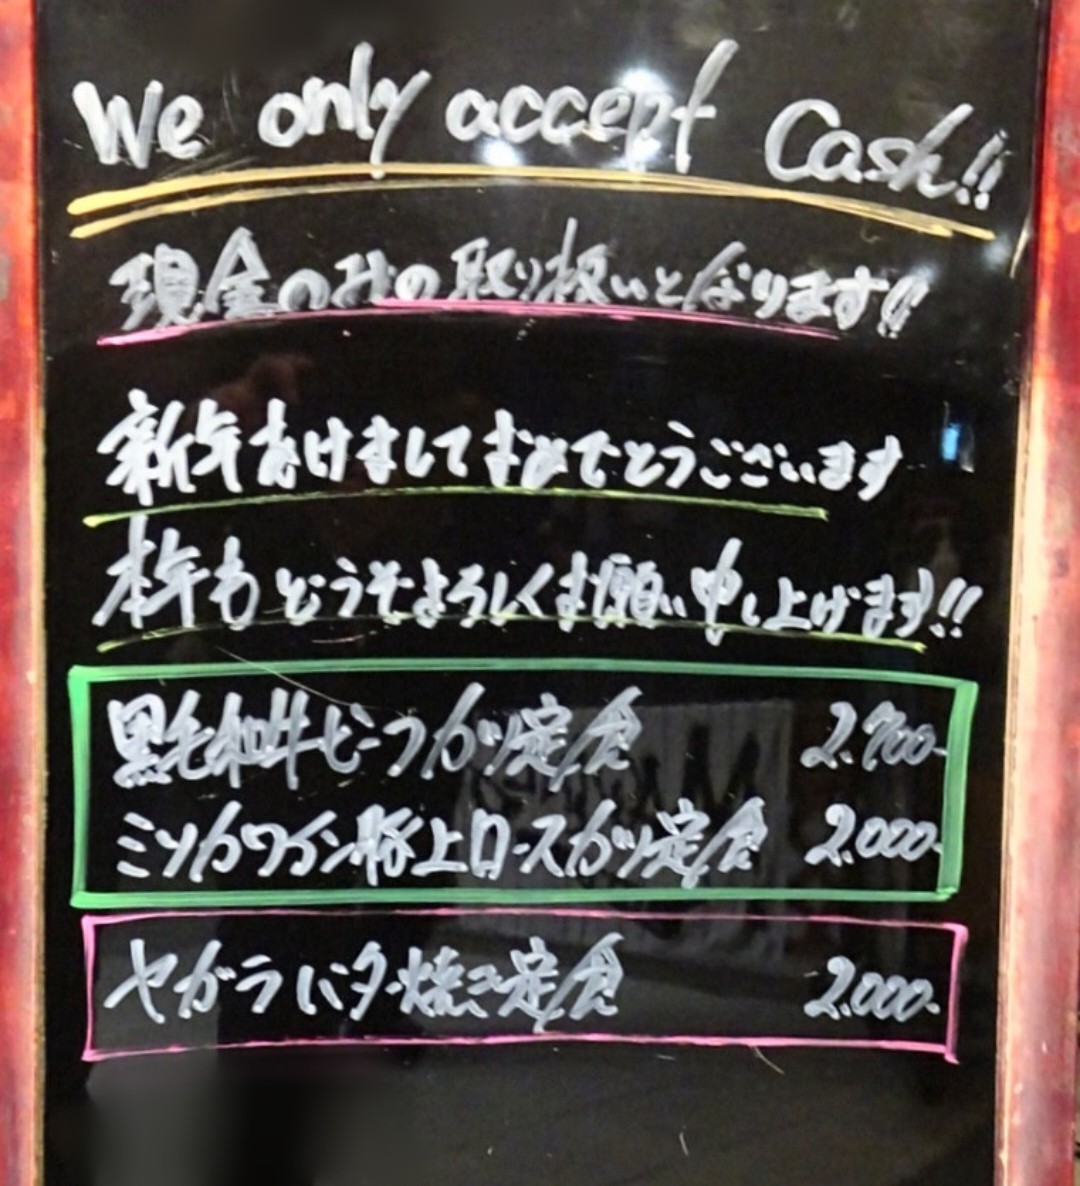 We only accept Cash!!
現金のみの取り扱いとなります!!
新年あけましておめでとうございます
本年もどうぞよろしくお願い申し上げます!!
黒毛和牛ビーフカツ定食 2.700-
ミツカワイン豚上ロースカツ定食 2.000-
ヤガラバター焼き定食 2.000-